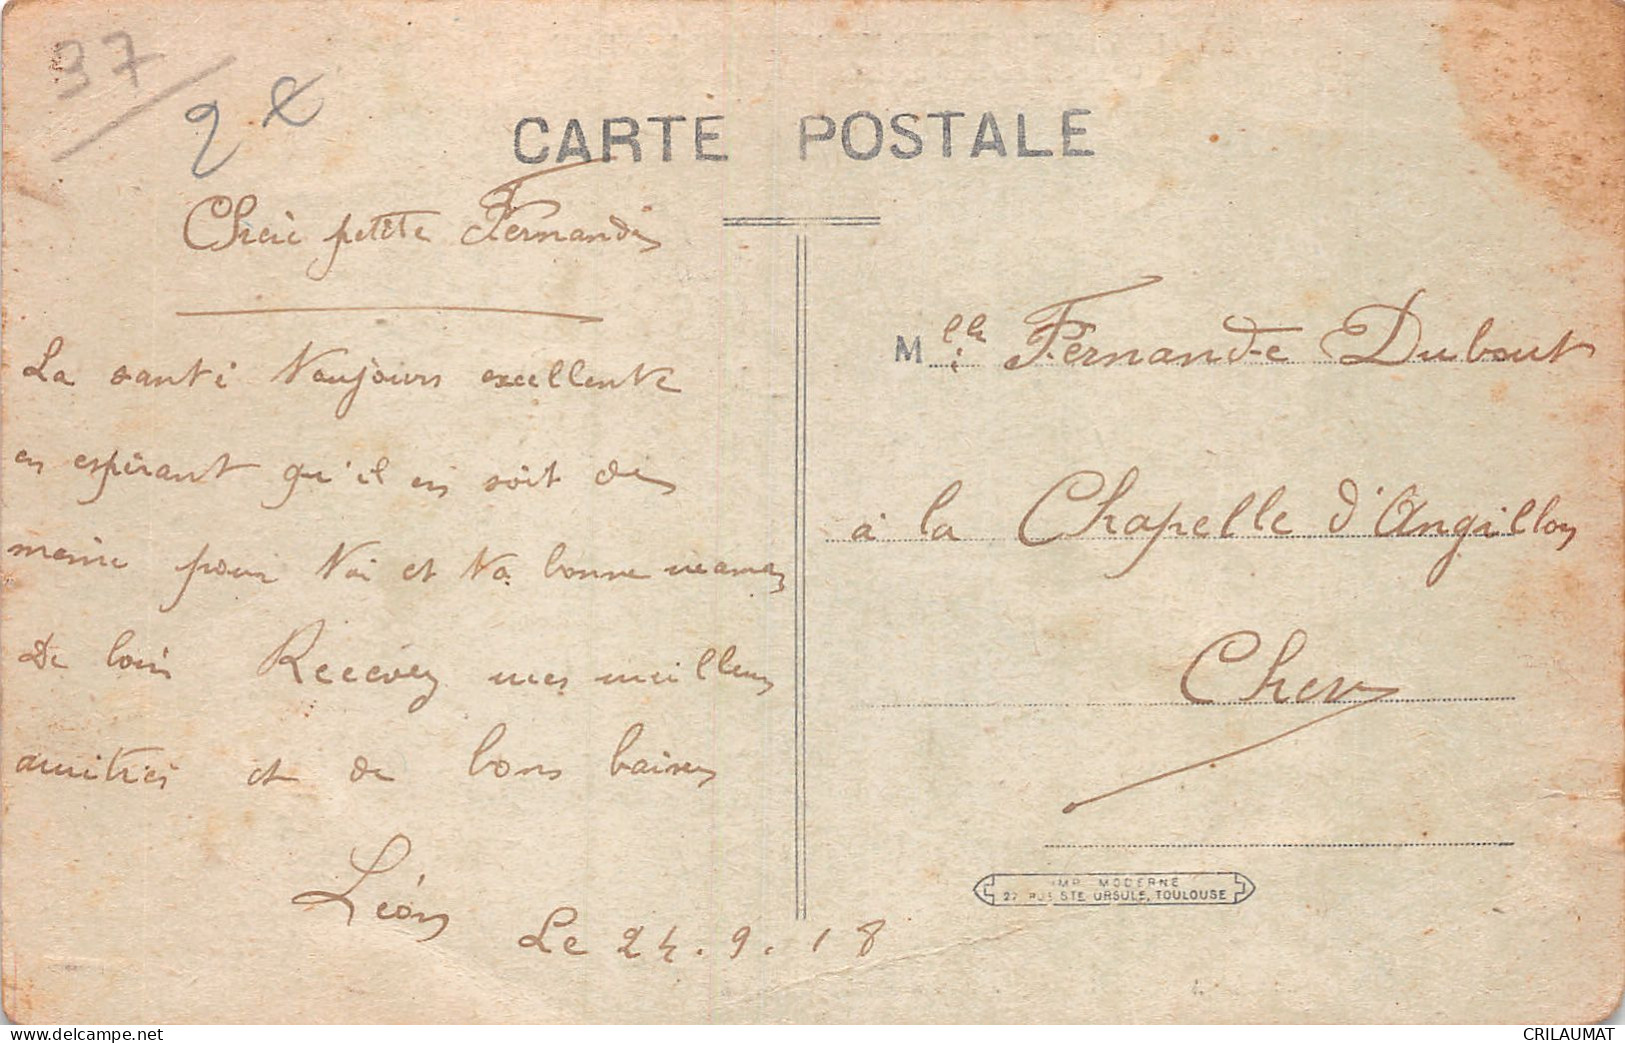 37
2e
CARTE POSTALE
Chère petite Fernande
La santé Toujours excellente
en espérant qu'il en soit de
meme pour Toi et Ta bonne maman
De loin Recevez mes meilleurs
amitiés et de bons baisers
Léon
Le 24.9.18
Mlle Fernande Dubout
à la Chapelle d'Angillon
Cher
IMP. MODERNE
27 RUE STE URSULE, TOULOUSE
www.delcampe.net
CRILAUMAT